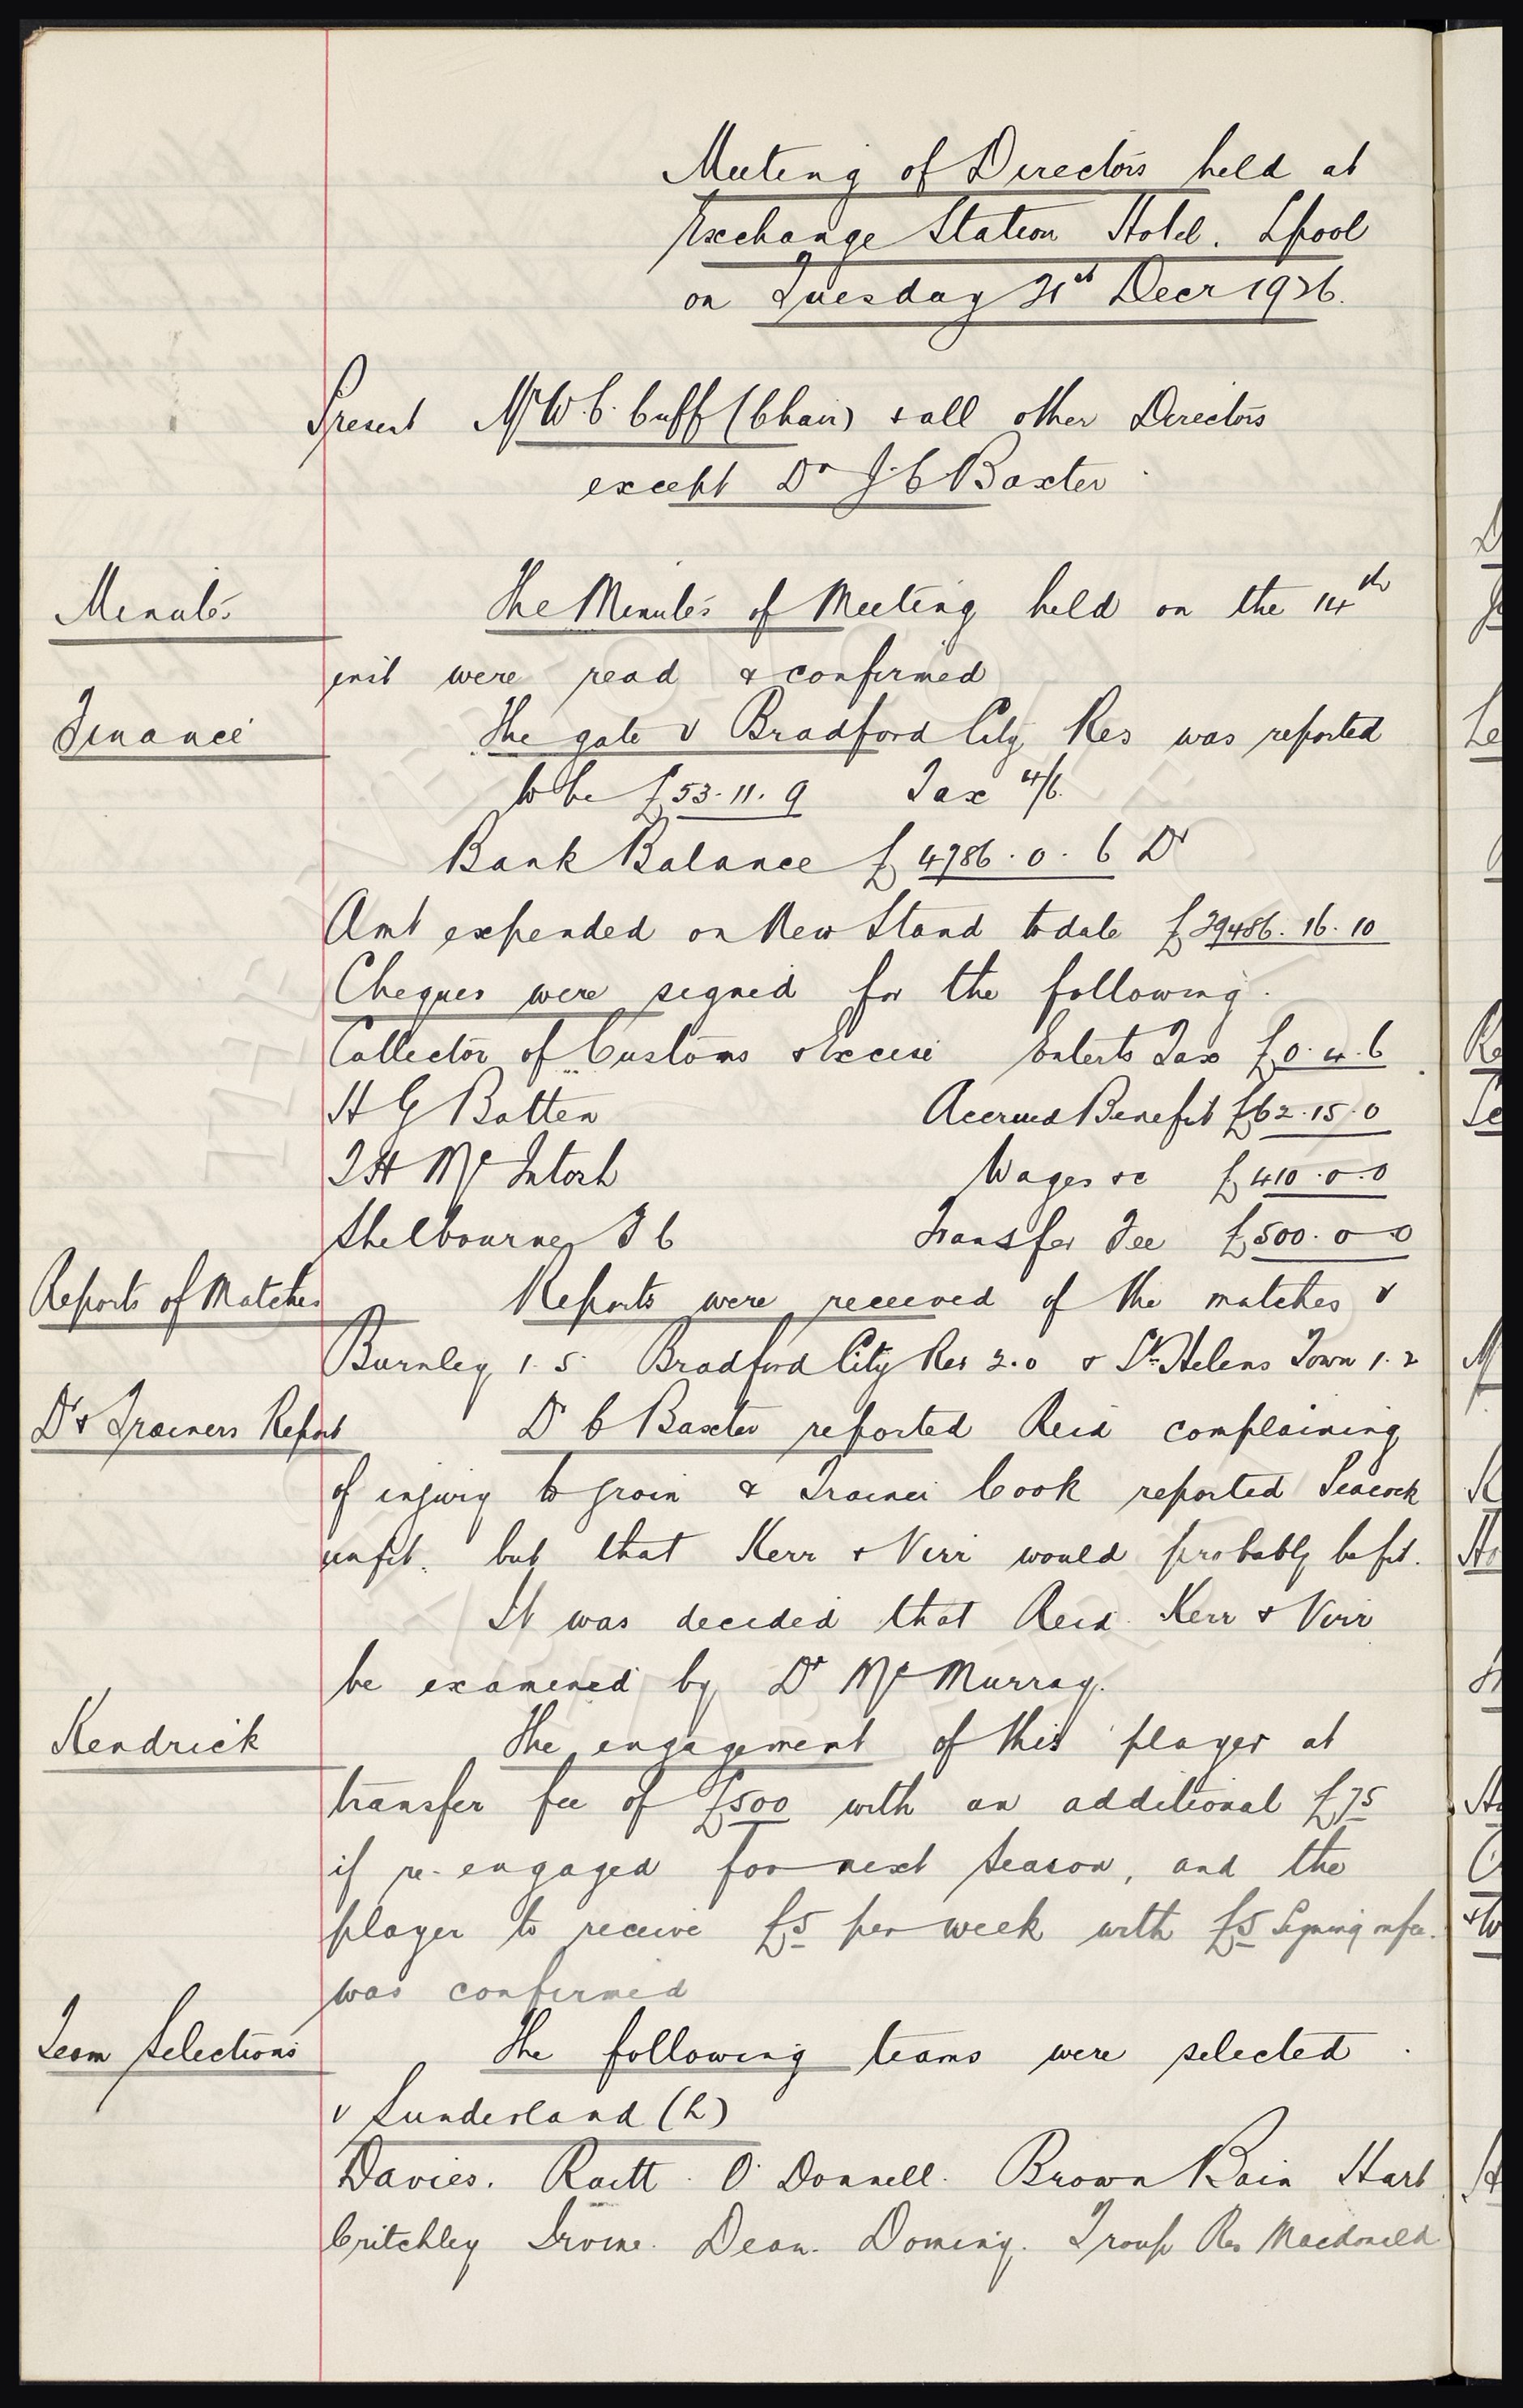 Meeting of Directors held at
Exchange Station Hotel. Lpool
on Tuesday 21st Decr 1926.
Present Mr W.C. Cuff (Chair) & all other Directors
except Dr J C Baxter
Minutes The Minutes of Meeting held on the 14th
inst were read & confirmed
Finance The gate v Bradford City Res was reported
to be £53.11.9 Tax 4/6.
Bank Balance £4786.0.6 Dr
Amt expended on New Stand to date £29486.16.10
Cheques were signed for the following.
Collector of Customs & Excise Enterts Tax £0.4.6
H G Batten Accrued Benefit £62.15.0
T H McIntosh Wages &c £410.0.0
Shelbourne F C Transfer Fee £500.0.0
Reports of Matches Reports were received of the matches v
Burnley 1.5. Bradford City Res 2.0 & St. Helens Town 1.2
Dr & Trainers Report Dr C Baxter reported Reid complaining
of injury to groin & Trainer Cook reported Peacock
unfit. but that Kerr & Virr would probably be fit.
It was decided that Reid. Kerr & Virr
be examined by Dr McMurray.
Kendrick The engagement of this player at
transfer fee of £500 with an additional £75
if re-engaged for next season, and the
player to receive £5 per week with £5 Signing on fee.
was confirmed
Team Selections The following teams were selected.
v Sunderland (h)
Davies. Raitt. O'Donnell. Brown Bain Hart
Critchley Irvine. Dean. Dominy. Troup Res Macdonald